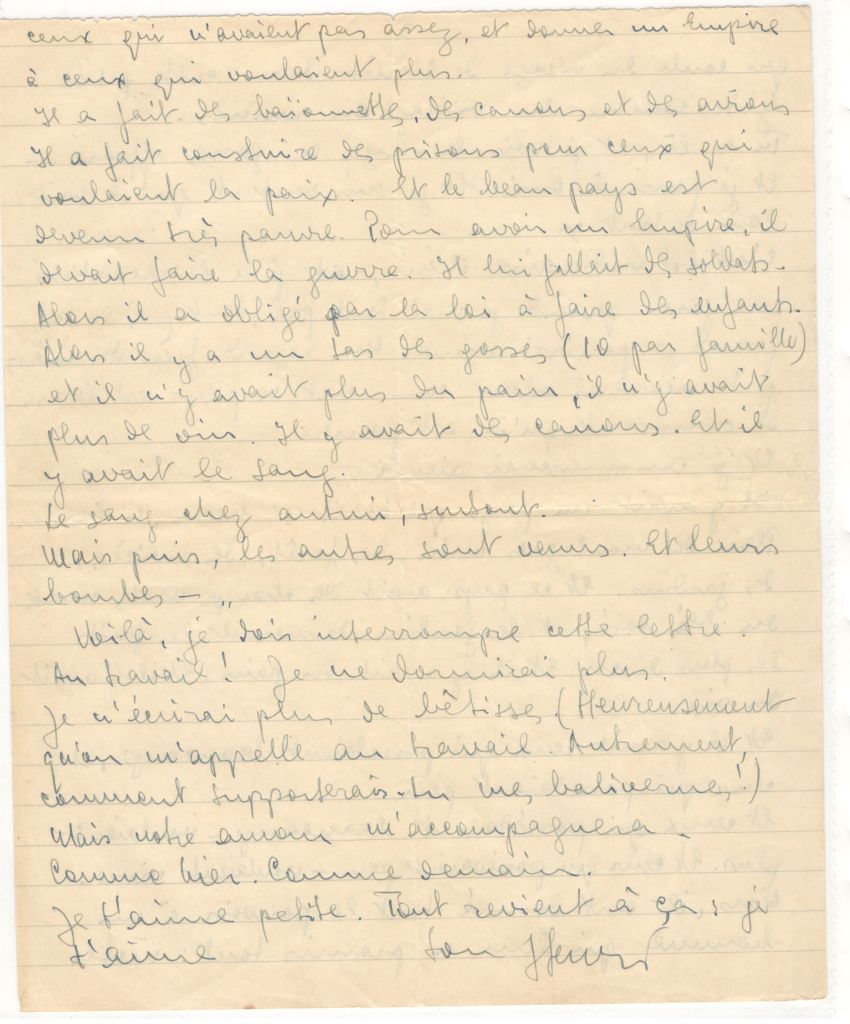 ceux qui n'avaient pas assez, et donner un Empire
à ceux qui voulaient plus.
Il a fait des baïonnettes, des canons et des avions
Il a fait construire des prisons pour ceux qui
voulaient la paix. Et le beau pays est
devenu très pauvre. Pour avoir un Empire, il
devait faire la guerre. Il lui fallait des soldats.
Alors il a obligé par la loi à faire des enfants.
Alors il y a un tas des gosses (10 par famille)
et il n'y avait plus du pain, il n'y avait
plus de vin. Il y avait des canons. Et il
y avait le sang.
Le sang chez autrui, surtout.
Mais puis, les autres sont venus. Et leurs
bombes — „
Voilà, je dois interrompre cette lettre.
Au travail! Je ne dormirai plus.
Je n'écrirai plus de bêtises. (Heureusement
qu'on m'appelle au travail. Autrement,
comment supporterais-tu mes balivernes!)
Mais notre amour m'accompagnera.
Comme hier. Comme demain.
Je t'aime petite. Tout revient à ça: je
t'aime ton Henri